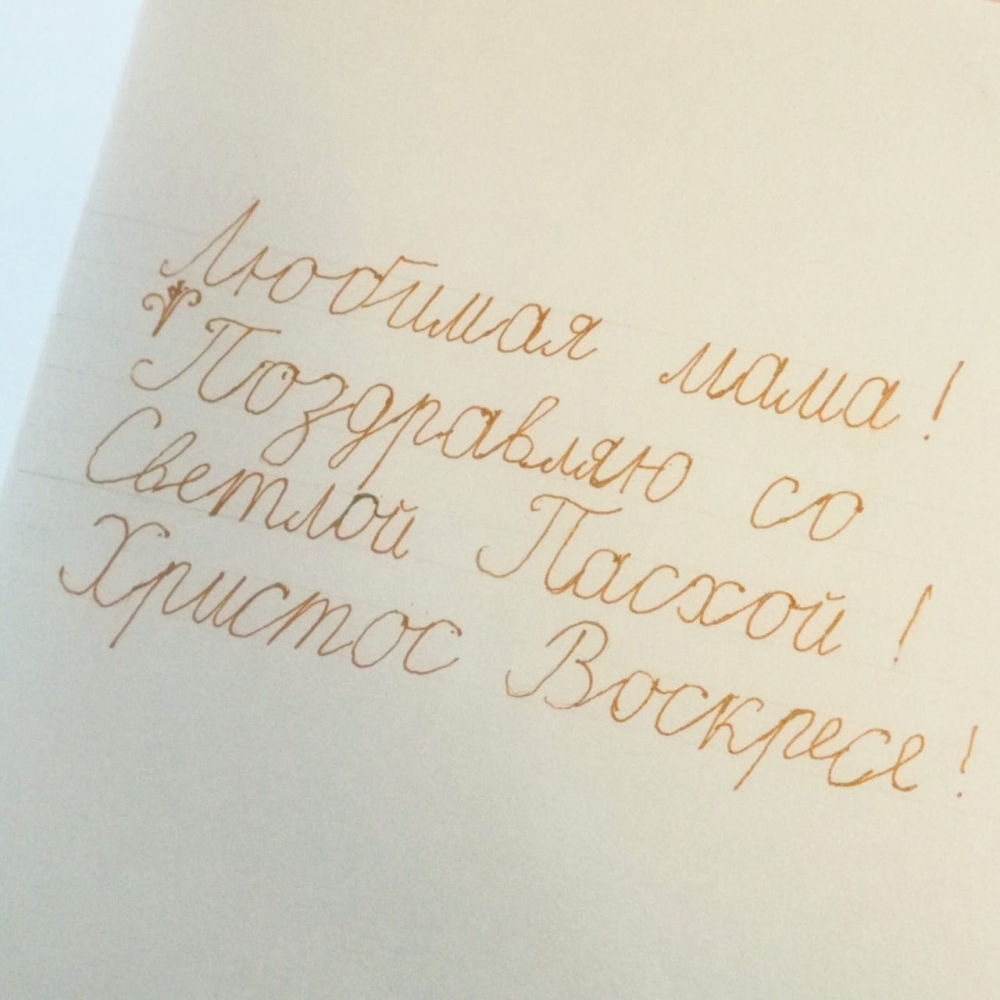 Любимая мама!
Поздравляю со
Светлой Пасхой!
Христос Воскресе!